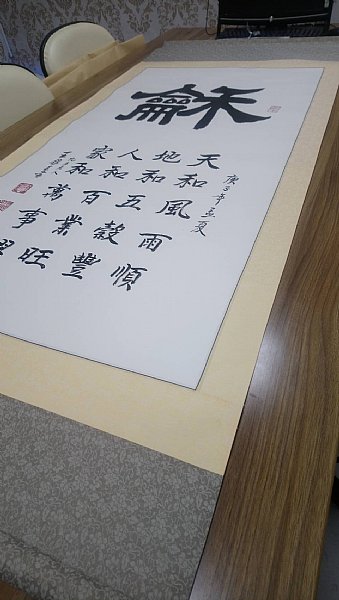 龢
庚子年孟夏
天和風雨順
地和五穀豐
人和百業旺
家和萬事